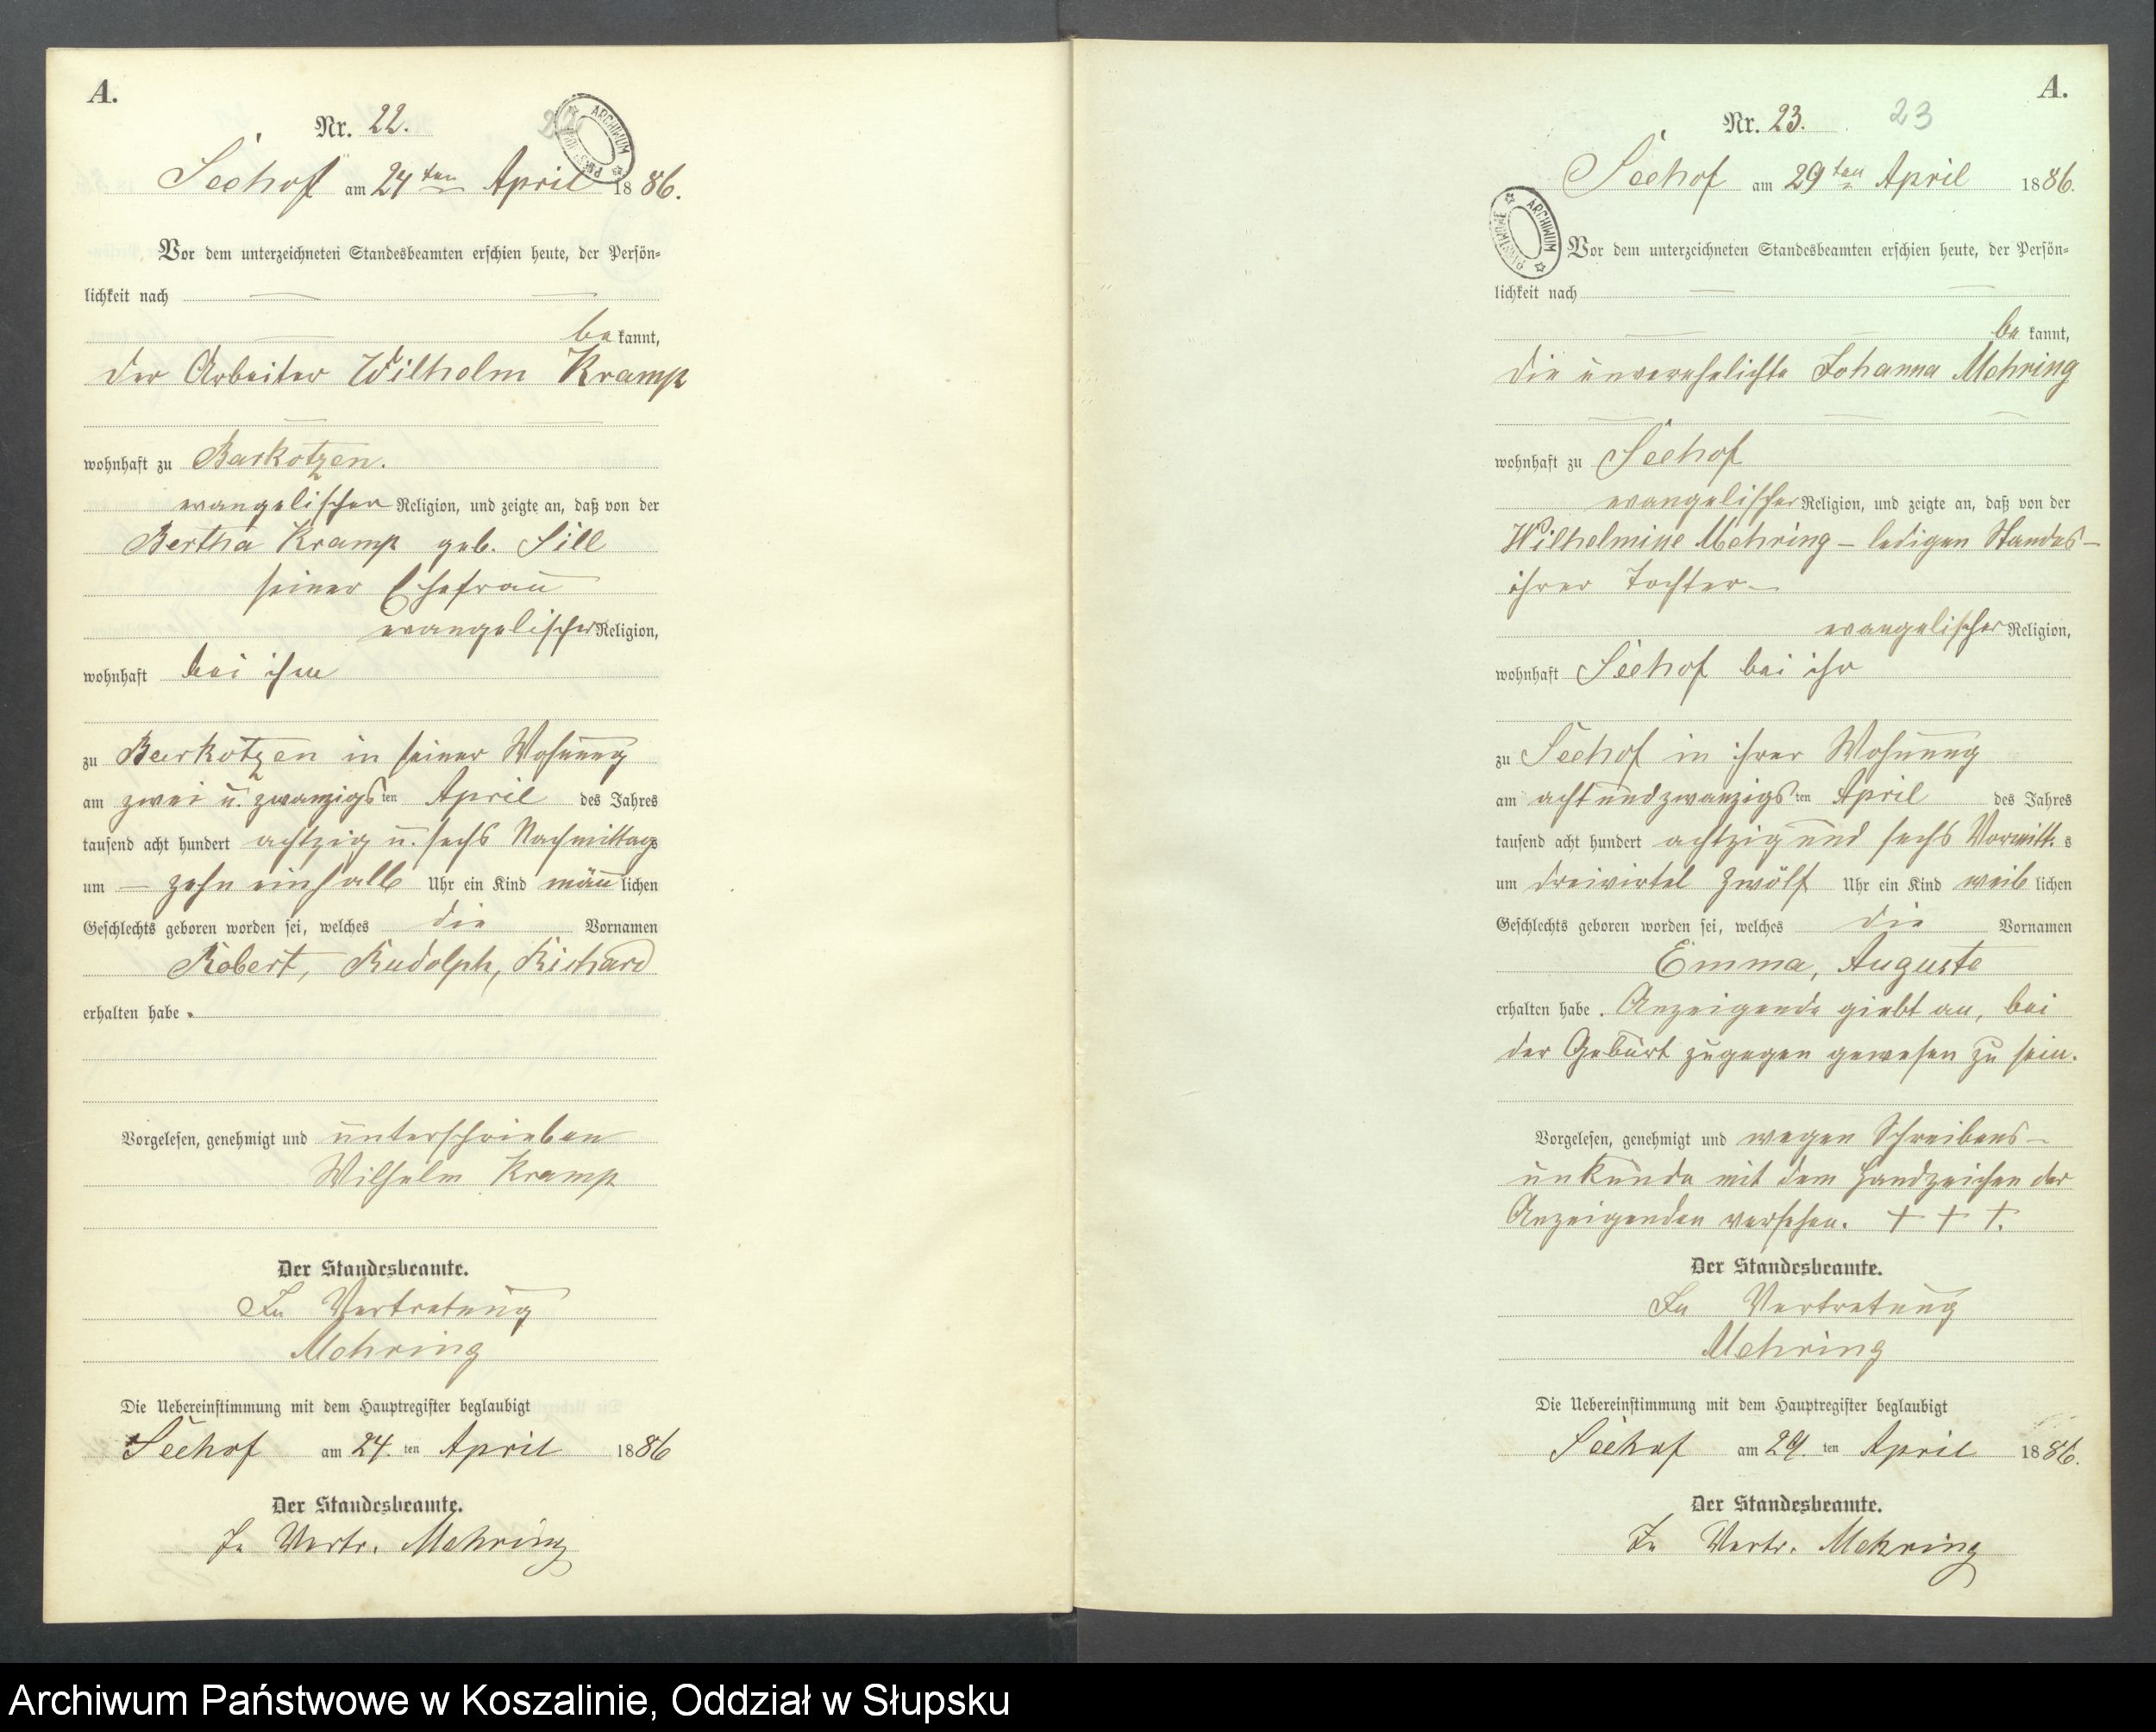 A.
Nr. 22.
22
ARCHIWUM PAŃSTWOWE
Seehof am 24ten April 1886.
Vor dem unterzeichneten Standesbeamten erschien heute, der Persön-
lichkeit nach
be kannt,
der Arbeiter Wilhelm Kramp
wohnhaft zu Barkotzen.
evangelischer Religion, und zeigte an, daß von der
Bertha Kramp geb. Sill
seiner Ehefrau
evangelischer Religion,
wohnhaft bei ihm
zu Barkotzen in seiner Wohnung
am zwei u. zwanzigsten April des Jahres
tausend acht hundert achtzig u. sechs Nachmittags
um — zehn einhalb Uhr ein Kind männlichen
Geschlechts geboren worden sei, welches die Vornamen
Robert, Rudolph, Richard
erhalten habe.
Vorgelesen, genehmigt und unterschrieben
Wilhelm Kramp
Der Standesbeamte.
In Vertretung
Mehring
Die Uebereinstimmung mit dem Hauptregister beglaubigt
Seehof am 24. ten April 1886
Der Standesbeamte.
In Vertr. Mehring
A.
Nr. 23.
23
Seehof am 29ten April 1886.
ARCHIWUM PAŃSTWOWE
Vor dem unterzeichneten Standesbeamten erschien heute, der Persön-
lichkeit nach
be kannt,
die unverehelichte Johanna Mehring
wohnhaft zu Seehof
evangelischer Religion, und zeigte an, daß von der
Wilhelmine Mehring – ledigen Standes –
ihrer Tochter –
evangelischer Religion,
wohnhaft Seehof bei ihr
zu Seehof in ihrer Wohnung
am acht und zwanzigsten April des Jahres
tausend acht hundert achtzig und sechs Vormitt.s
um dreivirtel zwölf Uhr ein Kind weiblichen
Geschlechts geboren worden sei, welches die Vornamen
Emma, Auguste
erhalten habe. Anzeigende giebt an, bei
der Geburt zugegen gewesen zu sein.
Vorgelesen, genehmigt und wegen Schreibens-
unkunde mit dem Handzeichen der
Anzeigenden versehen. + + +.
Der Standesbeamte.
In Vertretung
Mehring
Die Uebereinstimmung mit dem Hauptregister beglaubigt
Seehof am 29. ten April 1886.
Der Standesbeamte.
In Vertr. Mehring
Archiwum Państwowe w Koszalinie, Oddział w Słupsku